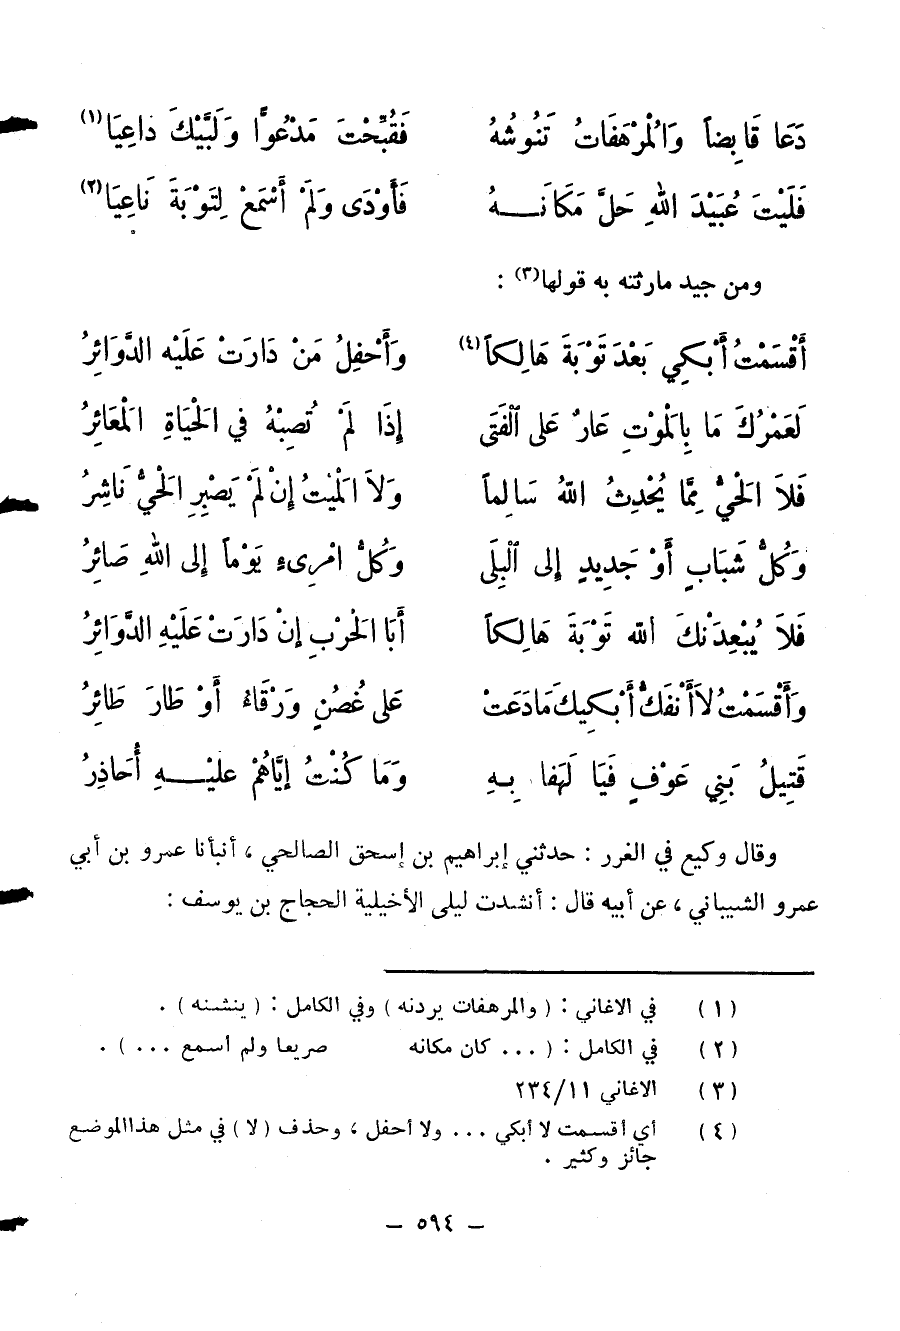 دَعَا قَابِضاً وَالْمُرْهَفَاتُ تَنُوشُهُ فَقُبِّحْتَ مَدْعُوًّا وَلَبَّيْكَ دَاعِيَا (١)
فَلَيْتَ عُبَيْدَ اللهِ حَلَّ مَكَانَـــهُ فَأَوْدَى وَلَمْ أَسْمَعْ لِتَوْبَةَ نَاعِيَا (٢)
ومن جيد مارثته به قولها (٣) :
أَقْسَمْتُ أَبْكِي بَعْدَ تَوْبَةَ هَالِكاً (٤) وَأَحْفِلُ مَنْ دَارَتْ عَلَيْهِ الدَّوَائِرُ
لَعَمْرُكَ مَا بِالْمَوْتِ عَارٌ عَلَى الْفَتَى إِذَا لَمْ تُصِبْهُ فِي الْحَيَاةِ الْمَعَائِرُ
فَلاَ الْحَيُّ مِمَّا يُحْدِثُ اللهُ سَالِماً وَلاَ الْمَيْتُ إِنْ لَمْ يَصْبِرِ الْحَيُّ نَاشِرُ
وَكُلُّ شَبَابٍ أَوْ جَدِيدٍ إِلى الْبِلَى وَكُلُّ امْرِىءٍ يَوْماً إِلى اللهِ صَائِرُ
فَلاَ يُبْعِدَنْكَ الله تَوْبَةَ هَالِكاً أَبَا الْحَرْبِ إِنْ دَارَتْ عَلَيْهِ الدَّوَائِرُ
وَأَقْسَمْتُ لاَ أَنْفَكُّ أَبْكِيكَ مَا دَعَتْ عَلَى غُصُنٍ وَرْقَاءُ أَوْ طَارَ طَائِرُ
قَتِيلُ بَنِي عَوْفٍ فَيَا لَهَفا بِهِ وَمَا كُنْتُ إِيَّاهُمْ عليْـــهِ أُحَاذِرُ
وقال وكيع في الغرر : حدثني إبراهيم بن إسحق الصالحي ، أنبأنا عمرو بن أبي
عمرو الشيباني ، عن أبيه قال : أنشدت ليلى الأخيلية الحجاج بن يوسف :
(١) في الاغاني : ( والمرهفات يردنه ) وفي الكامل : ( ينشنه ) .
(٢) في الكامل : ( ... كان مكانه صريعا ولم أسمع ... ) .
(٣) الاغاني ١١/٢٣٤
(٤) أي أقسمت لا أبكي ... ولا أحفل ، وحذف ( لا ) في مثل هذا الموضع
جائز وكثير .
— ٥٩٤ —